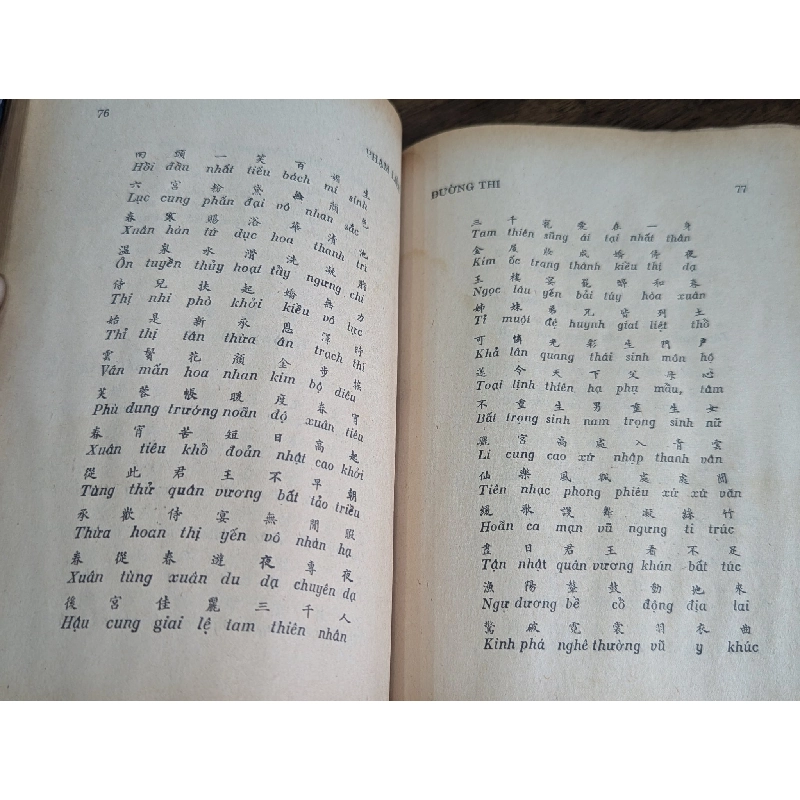 76
回頭一笑百媚生
Hồi đầu nhất tiếu bách mi sinh
六宮粉黛無顏色
Lục cung phấn đại vô nhan sắc
春寒賜浴華清池
Xuân hàn tứ dục hoa thanh trì
溫泉水滑洗凝脂
Ôn tuyền thủy hoạt tẩy ngưng chi
侍兒扶起嬌無力
Thị nhi phò khởi kiều vô lực
始是新承恩澤時
Thỉ thị tân thừa ân trạch thì
雲鬢花顏金步搖
Vân mấn hoa nhan kim bộ diêu
芙蓉帳暖度春宵
Phù dung trướng noãn độ xuân tiêu
春宵苦短日高起
Xuân tiêu khổ đoản nhật cao khởi
從此君王不早朝
Tùng thử quân vương bất tảo triều
承歡侍宴無閒暇
Thừa hoan thị yến vô nhàn hạ
春從春遊夜專夜
Xuân tùng xuân du dạ chuyên dạ
後宮佳麗三千人
Hậu cung giai lệ tam thiên nhân
ĐƯỜNG THI
77
三千寵愛在一身
Tam thiên sủng ái tại nhất thân
金屋妝成嬌侍夜
Kim ốc trang thành kiều thị dạ
玉樓宴罷醉和春
Ngọc lâu yến bải túy hòa xuân
姊妹弟兄皆列土
Tỉ muội đệ huynh giai liệt thổ
可憐光彩生門戶
Khả lân quang thái sinh môn hộ
遂令天下父母心
Toại lịnh thiên hạ phụ mẫu, tâm
不重生男重生女
Bất trọng sinh nam trọng sinh nữ
驪宮高處入青雲
Li cung cao xứ nhập thanh vân
仙樂風飄處處聞
Tiên nhạc phong phiêu xử xử văn
緩歌謾舞凝絲竹
Hoãn ca mạn vũ ngưng ti trúc
盡日君王看不足
Tận nhật quân vương khán bất túc
漁陽鼙鼓動地來
Ngư dương bề cổ động địa lai
驚破霓裳羽衣曲
Kinh phá nghê thường vũ y khúc